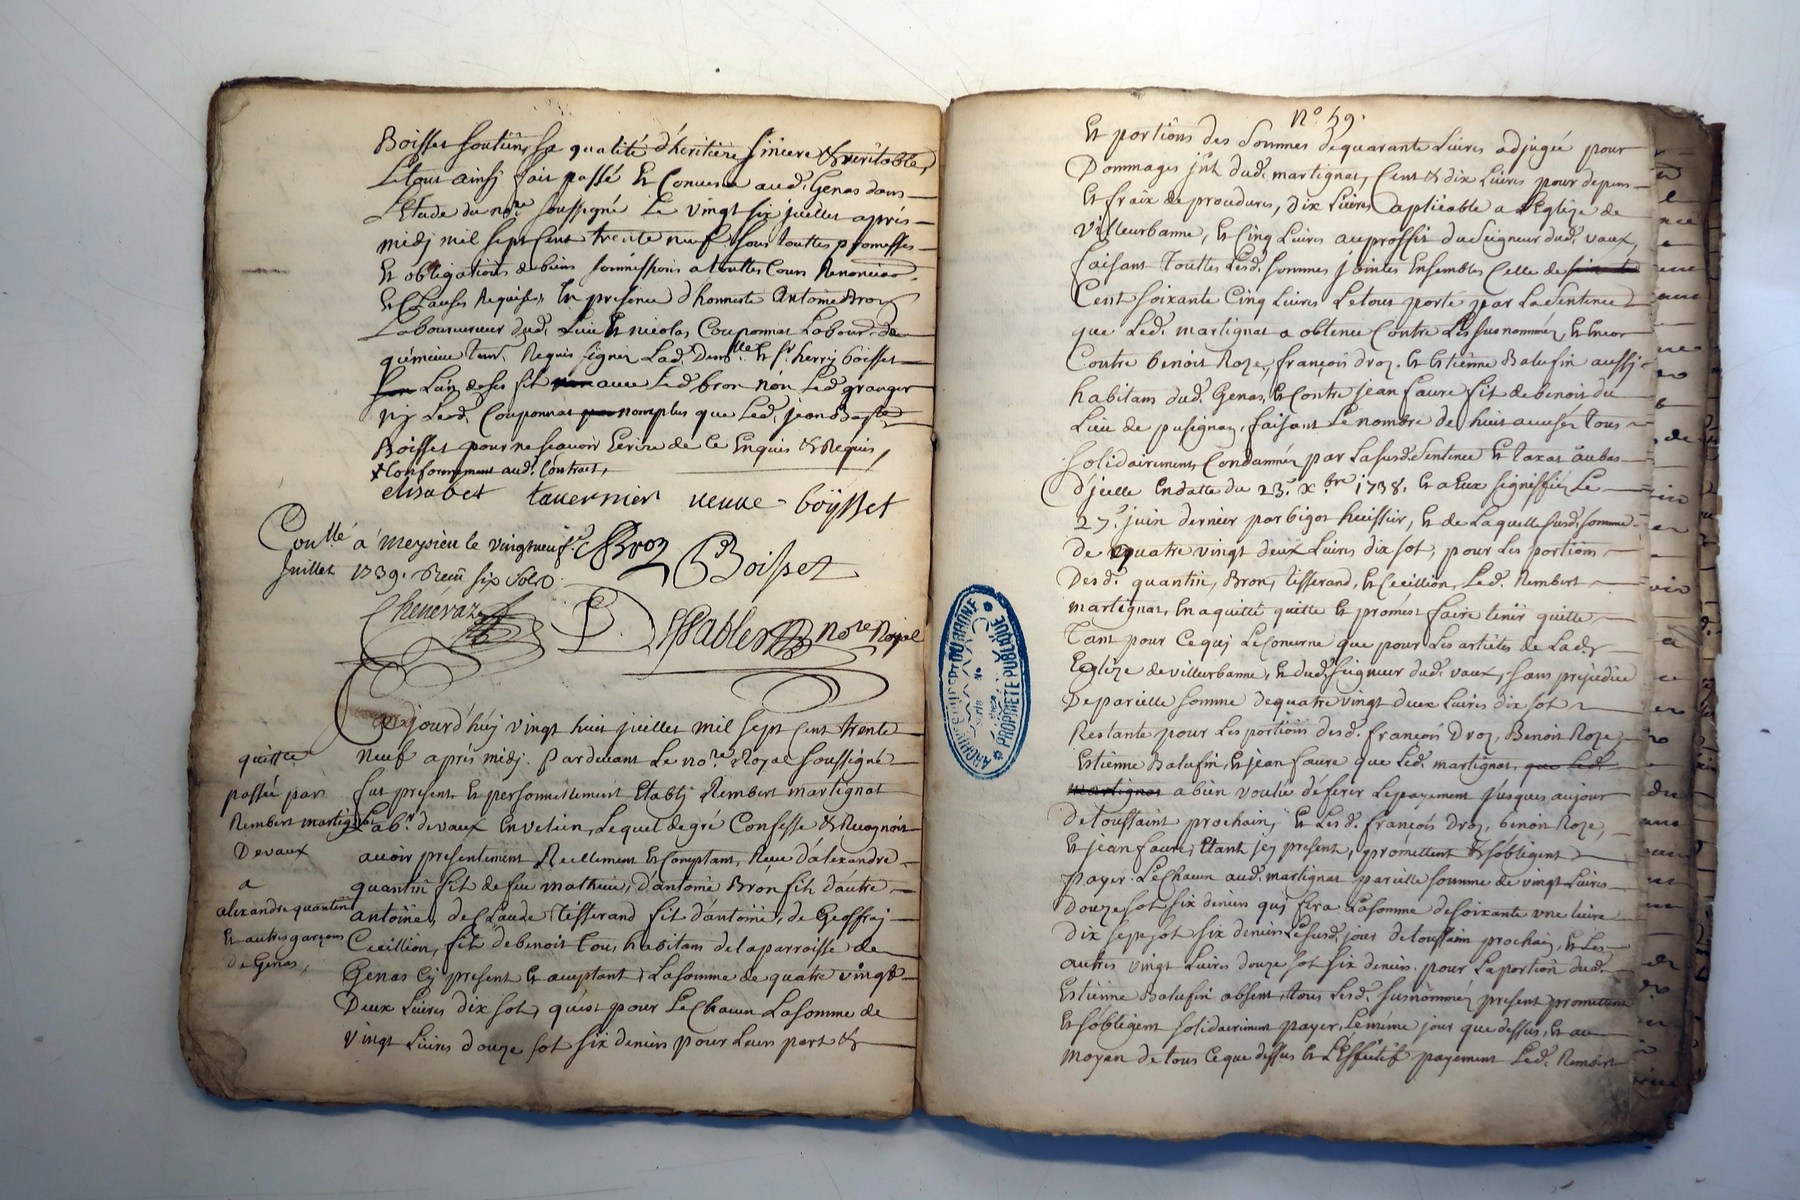 Boisset soutiens sa qualité d'héritière sincere & veritable,
Le tout ainsy fait passé Et Convenu aud. Genas dans
L'étude du no.re soussigné Le vingt six juillet aprés
midj mil sept Cent trente neuf sous touttes promesses
Et obligations de biens soumissions a touttes Cours Renonciaōn
Et Clauses Requises, En presence d'honneste Antoine Bron
Laboureur dud. Lieu Et nicolas Couponnat Labour. de
Requis signer Lad. Dem.lle Et s.r henry boisset
L'un de ses fils avec Led. bron nōn Led. granger
ny Led. Couponnat nomplus que Led. jean Bap.te
Boisset pour ne sçavoir Ecrire de Ce Enquis & Requis,
+ Conformement aud. Contract,
elisabet tavernier veuve - boÿsset
Coñllé a meysieu le vingtneuf.e
Juillet 1739. Receu six sols
Bron Boisset
Chenevaz B.D. Sablet no.re Royal
Aujourd'huj vingt huit juillet mil sept Cent trente
neuf aprés midj. Pardevant Le no.re Royal soussigné
fut present Et personnellement Etablj Rembert martignat
Lab.r de vaux En velein, Lequel de gré Confesse & Recognoit
avoir presentement Reellement Et Comptant, Receu d'alexandre
quantin fils de feu mathieu, d'antoine Bron fils d'autre
antoine, de Claude tisserand fils d'antoine, de Geoffraj
Cecillion, fils de benoit tous habitans de la parroisse de
Genas Cy present Et acceptant, La somme de quatre vingt
Deux Livres dix sol, qu'est pour Le Chacun La somme de
vingt Livres douze sol six deniers pour Leurs part &
quittce
passée par
Rembert martignat
De vaux
a
alexandre quantin
Et autres garçons
de Genas,
N.o 59.
Et portions des sommes de quarante Livres adjugée pour
Dommages jnt. dud. martignat, Cent & dix Livres pour depens
Et fraix de procedures, dix Livres aplicable a L'Eglize de
villeurbanne, Et Cinq Livres au proffit du seigneur dud. vaux,
faisant touttes Lesd. sommes jointes Ensembles Celle de
Cent soixante Cinq Livres Le tout porté par La Sentence
que Led. martignat a obtenue Contre Les susnommés, Et Encor
Contre benoit Roze, françois droz. Et Estienne Balufin aussj
habitans dud. Genas, Et Contre jean faure fils de benoit du
Lieu de pusignan, faisant Le nombre de huit accusés tous
solidairement Condamnés par La susd. Sentence Et taxat au bas
d'jcelle En datte du 23.e x.bre 1738. Et a Eux signiffiée Le
27.e juin dernier par bigot huissier, Et de Laquelle susd. somme
de quatre vingt deux Livres dix sol, pour Les portions
Desd. quantin, Bron, tisserand, Et Cecillion, Led. Rembert
martignat, En a quitté quitte Et promést faire tenir quitte
tant pour Ce quj Le Concerne que pour Les articles de Lad.
Eglize de villeurbanne, Et dud. seigneur dud. vaux, sans prejudice
De pareille somme de quatre vingt deux Livres dix sol
Restante pour Les portions desd. françois Droz, Benoit Roze,
Estienne Balufin, Et jean faure que Led. martignat, que Led.
martignat a bien voulu déferer Le payement jusques au jour
de toussaint prochain, Et Lesd. françois Droz, benoit Roze,
Et jean faure, Etant jcy present, promettent & s'obligent
payer Le Chacun aud. martignat pareille somme de vingt Livres
Douze sol six deniers quj fera La somme de soixante une livre
dix sept sol six deniers Le susd. jour de toussaint prochain, Et Les
autres vingt Livres douze sol six deniers pour La portion dud.
Estienne Balufin absent, tous Lesd. susnommés present promettent
Et s'obligent solidairement payer Le même jour que dessus, Et au
moyen de tous Ce que dessus Et L'Effectif payement Led. Rembert
PROPRIÉTÉ PUBLIQUE